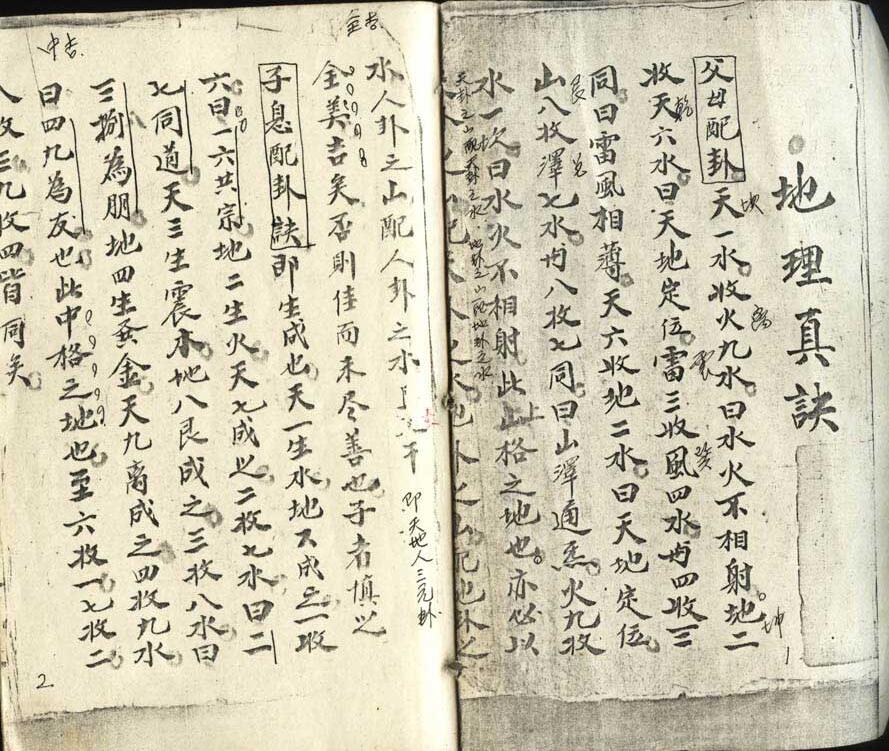 地理真訣
父母配卦 天一水收火九水曰水火不相射地二
收天六水曰天地定位雷三收風四水內四收三
同曰雷風相薄天六收地二水曰天地定位
山八收澤七水內八收七同曰山澤通炁火九收
水一坎曰水火不相射此上格之地也亦必以
天卦之山配天卦之水 地卦之山配地卦之水
天卦之山配天卦之水 地卦之山配地卦之
坎
離
坤
乾
震
巽
艮
兌
上
1
全吉
水人卦之山配人卦之水
即天地人三元卦
全美吉矣否則佳而未尽善也子者慎之
子息配卦訣 即生成也天一生水地六成之一收
六曰一六共宗地二生火天七成之二收七水曰二
七同道天三生震木地八艮成之三收八水曰
三捌為朋地四生金天九离成之四收九水
曰四九為友也此中格之地也至六收一七收二
八收三九收四皆同矣
中吉
2